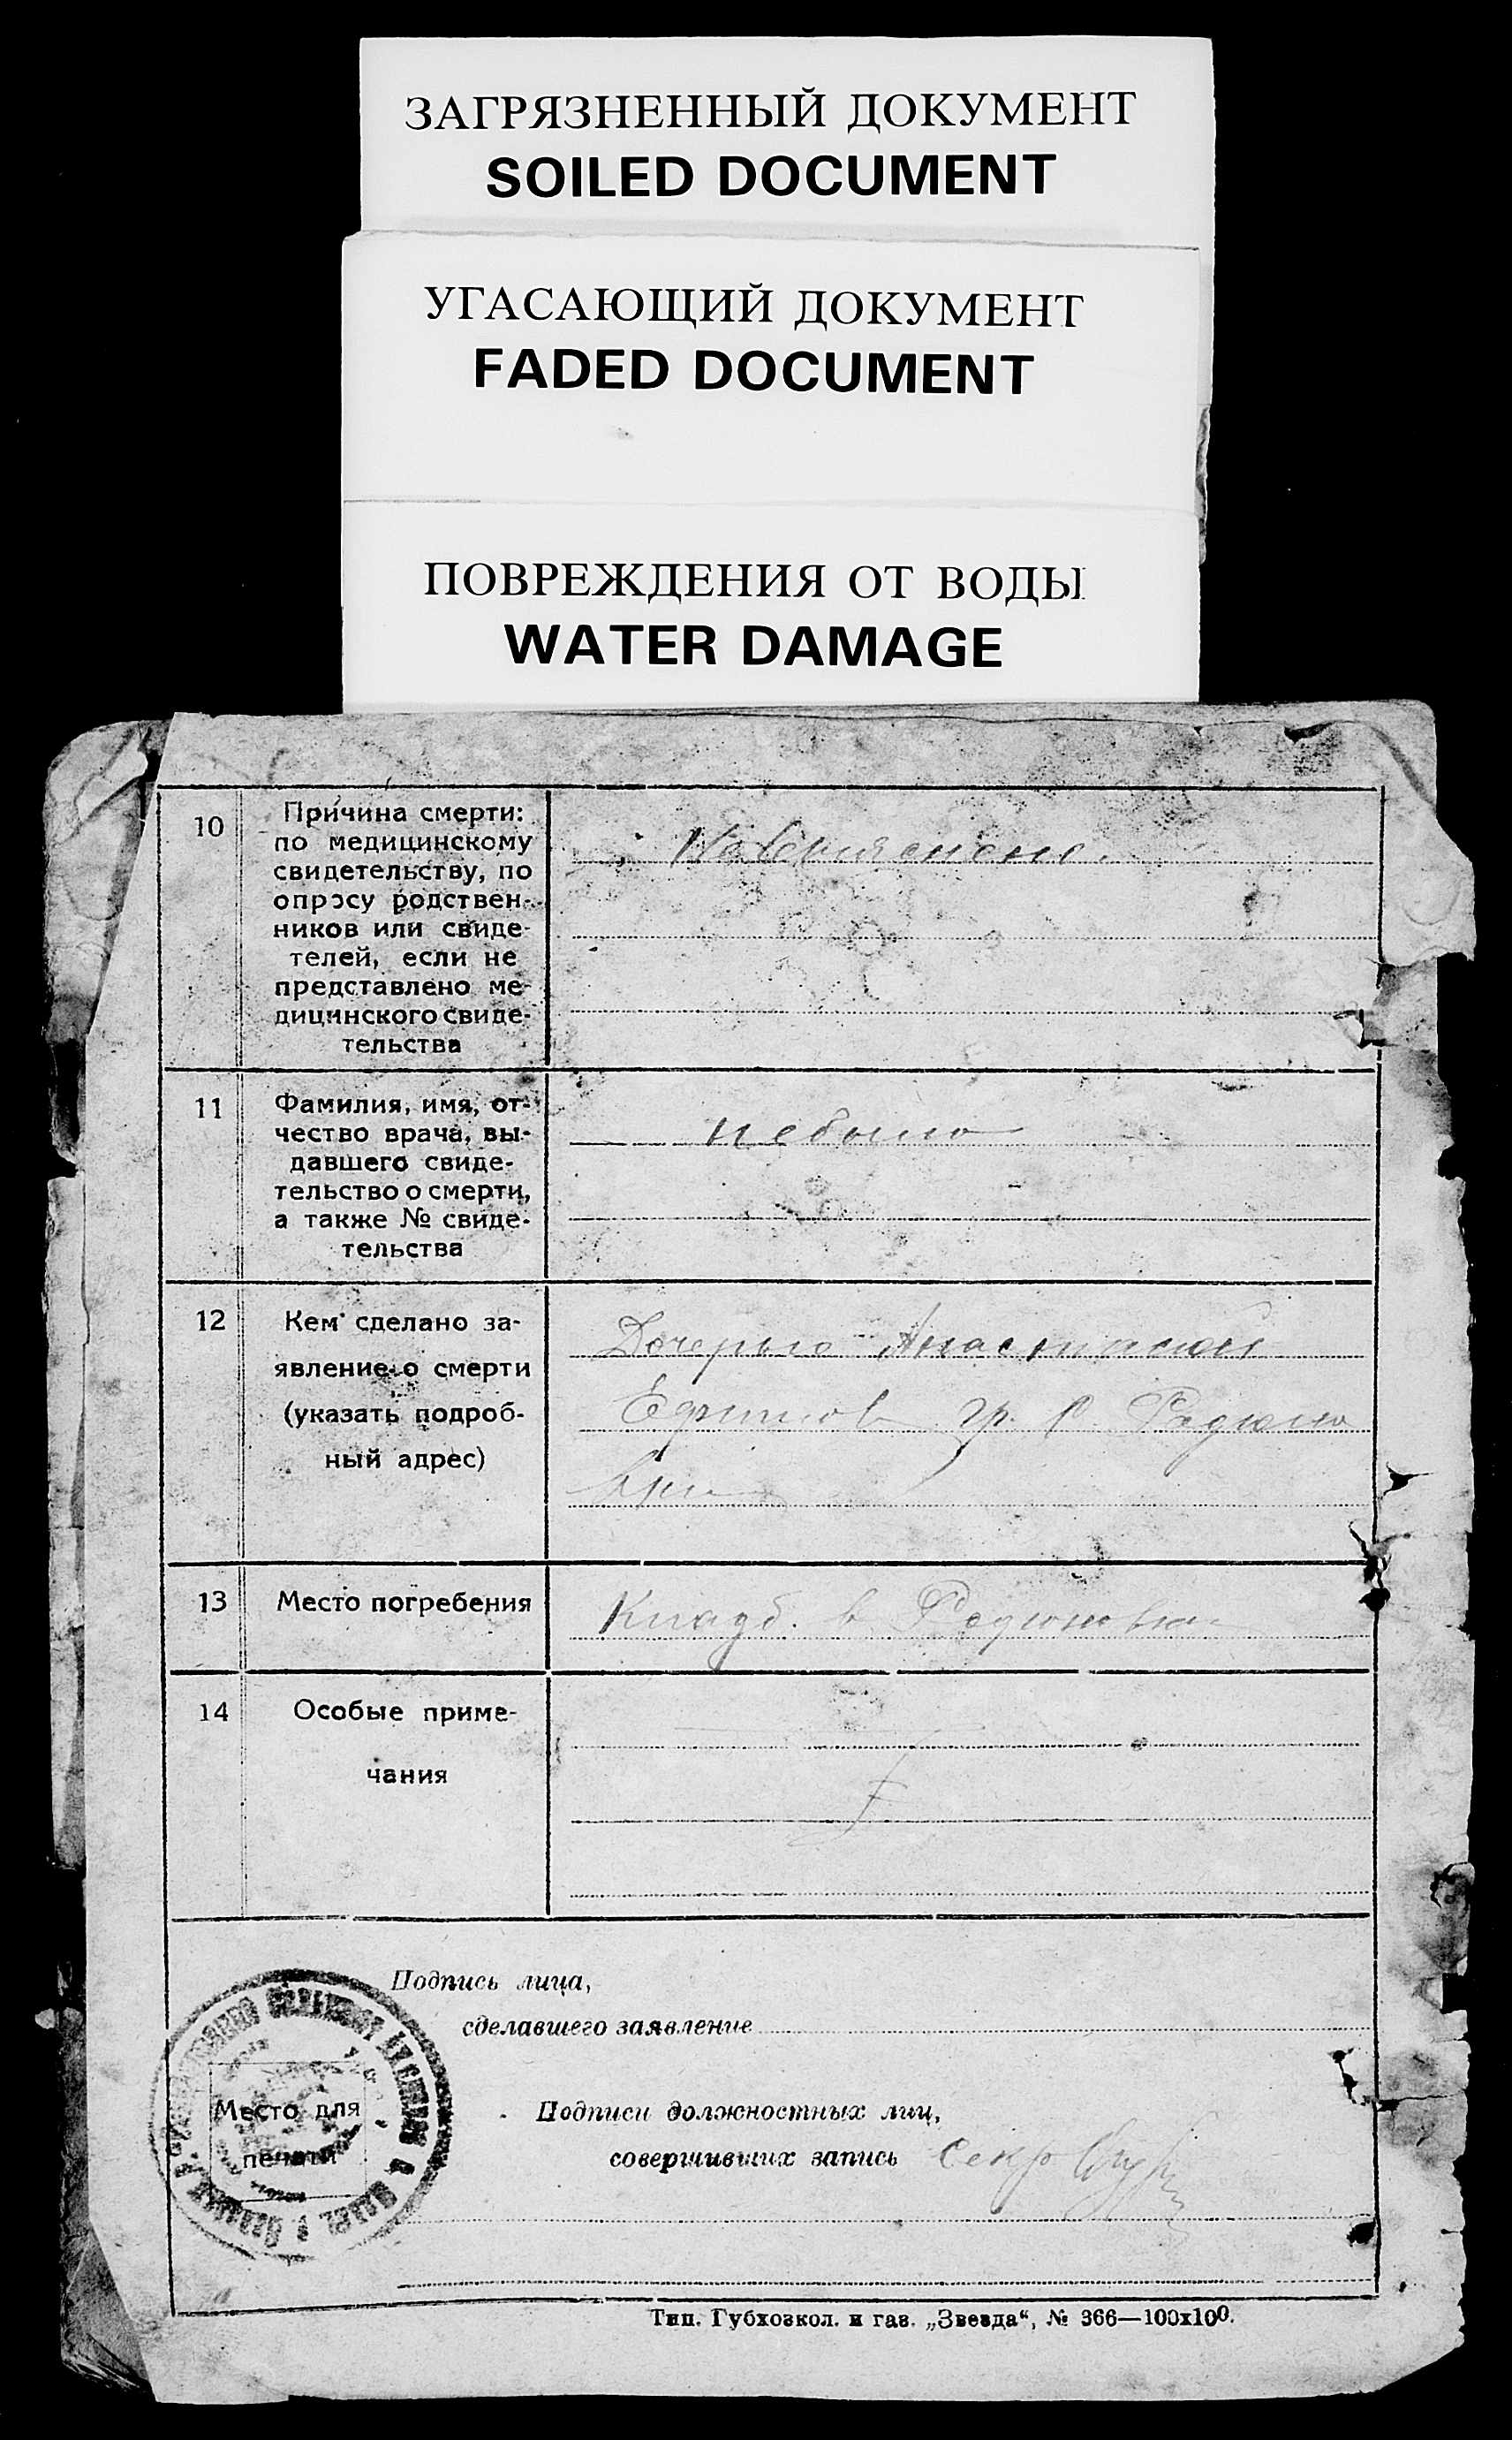 ЗАГРЯЗНЕННЫЙ ДОКУМЕНТ
SOILED DOCUMENT
УГАСАЮЩИЙ ДОКУМЕНТ
FADED DOCUMENT
ПОВРЕЖДЕНИЯ ОТ ВОДЫ
WATER DAMAGE
10
Причина смерти:
по медицинскому
свидетельству, по
опросу родствен-
ников или свиде-
телей, если не
представлено ме-
дицинского свиде-
тельства
Невыяснено.
11
Фамилия, имя, от-
чество врача, вы-
давшего свиде-
тельство о смерти,
а также № свиде-
тельства
небыло
12
Кем сделано за-
явление о смерти
(указать подроб-
ный адрес)
Дочерью Анастасией
Ефимов гр. с Родионо
13
Место погребения
Кладб. в Родионовке
14
Особые приме-
чания
Подпись лица,
сделавшего заявление
Место для
печати
Подписи должностных лиц,
совершивших запись Секр
Тип. Губхозкол. и газ. „Звезда“, № 366—100х100.